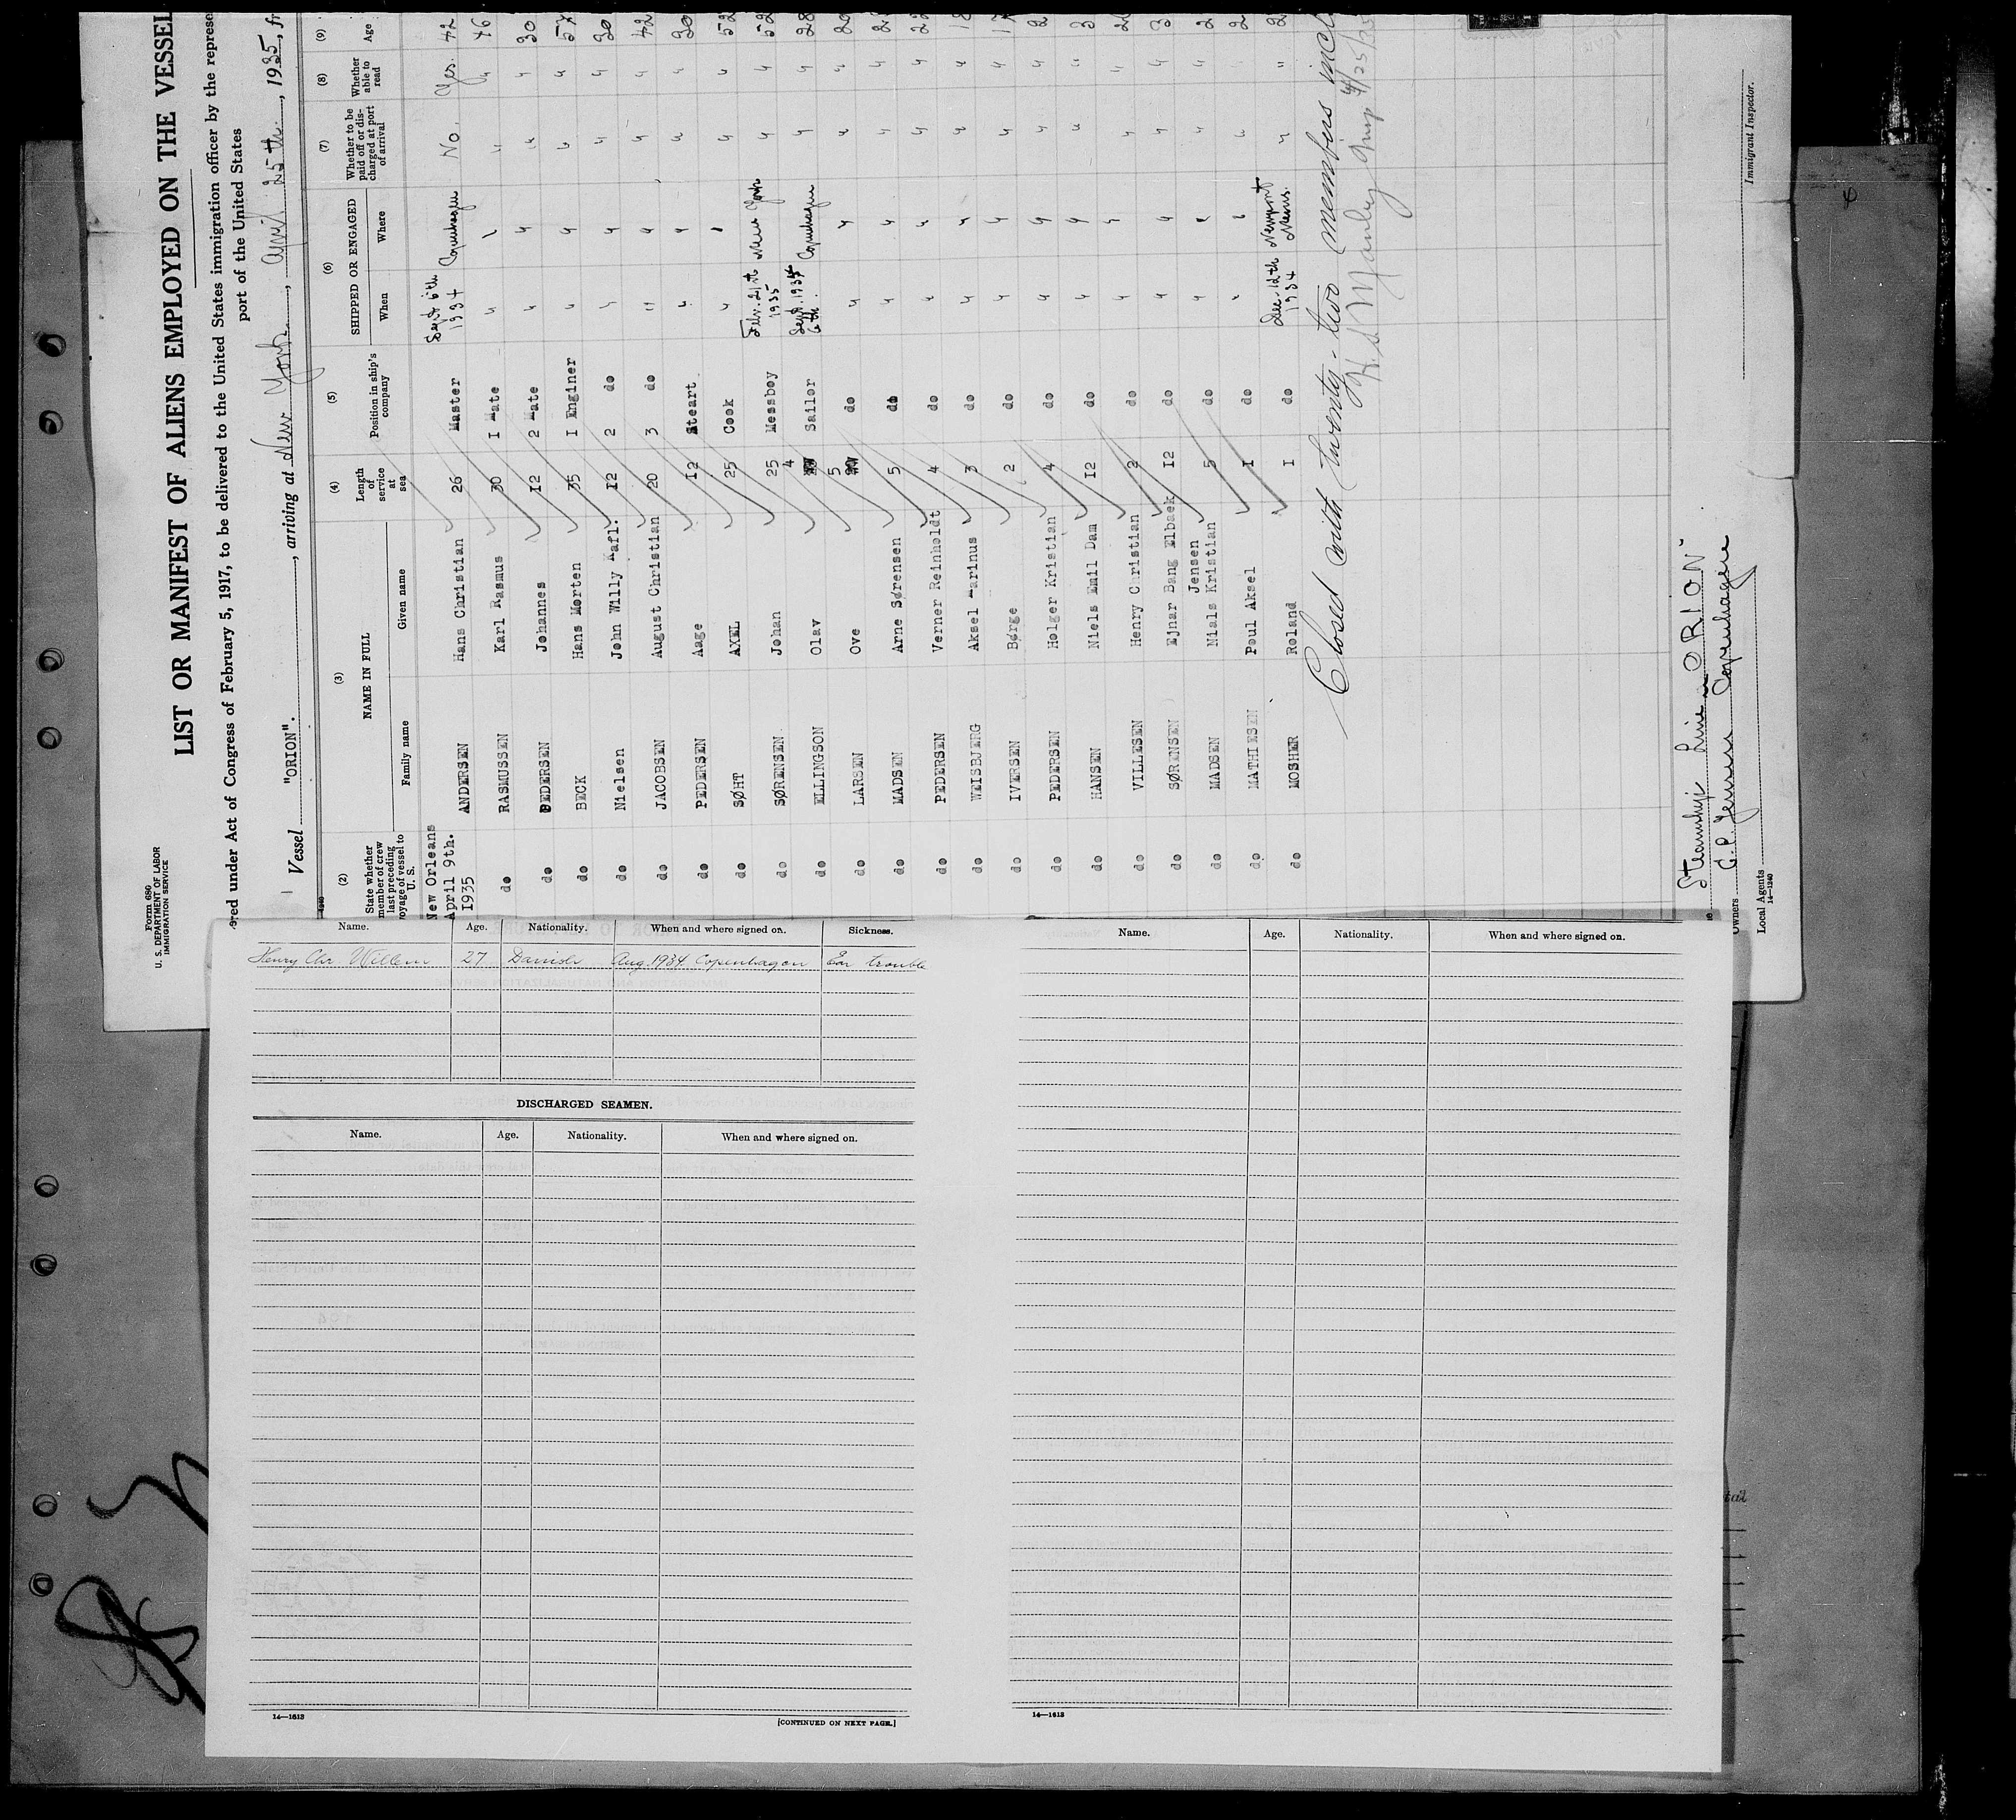 Form 680
U. S. DEPARTMENT OF LABOR
IMMIGRATION SERVICE
LIST OR MANIFEST OF ALIENS EMPLOYED ON THE VESSEL
ered under Act of Congress of February 5, 1917, to be delivered to the United States immigration officer by the represe
port of the United States
Vessel "ORION". , arriving at New York , April 25th , 1935, fr
(2) (3) (4) (5) (6) (7) (8) (9)
State whether member of crew last preceding voyage of vessel to U. S.
NAME IN FULL
Family name Given name
Length of service at sea
Position in ship's company
SHIPPED OR ENGAGED
When Where
Whether to be paid off or discharged at port of arrival
Whether able to read
Age
New Orleans April 9th. 1935 ANDERSEN Hans Christian 26 Master Sept 6th 1934 Copenhagen No. Yes. 42
do RASMUSSEN Karl Rasmus 30 1 Mate " " " " 46
do PEDERSEN Johannes 12 2 Mate " " " " 30
do BECK Hans Morten 35 1 Enginer " " " " 57
do Nielsen John Willy Kafl. 12 2 do " " " " 30
do JACOBSEN August Christian 20 3 do " " " " 42
do PEDERSEN Aage 12 Steart " " " " 30
do SØHT AXEL 25 Cook " " " " 52
do SØRENSEN Johan 25 Messboy Febr. 21st 1935 New York " " 52
do ELLINGSON Olav 4 Sailor Sept. 1934 6th. Copenhagen " " 28
do LARSEN Ove 5 do " " " " 20
do MADSEN Arne Sørensen 5 do " " " "
do PEDERSEN Verner Reinholdt 4 do " " " " 22
do WEISBJERG Aksel Marinus 3 do " " " " 18
do IVERSEN Børge 2 do " " " "
do PEDERSEN Holger Kristian 4 do " " " "
do HANSEN Niels Emil Dam 12 do " " " "
do VILLESEN Henry Christian 2 do " " "
do SØRENSEN Ejnar Bang Elbaek 12 do " " " "
do MADSEN Jensen Niels Kristian 5 do " " " "
do MATHIESEN Poul Aksel 1 do " " "
do MOSHER Roland 1 do Dec. 12th 1934 Newport News. " "
Closed with twenty-two members incl
4/25/35
Steamship Line "ORION"
Owners Copenhagen
Local Agents
14—1240
Immigrant Inspector.
Name. Age. Nationality. When and where signed on. Sickness.
Henry Chr. Willesen 27 Danish Aug. 1934 Copenhagen Ear trouble
DISCHARGED SEAMEN.
Name. Age. Nationality. When and where signed on.
14—1613
[CONTINUED ON NEXT PAGE.]
Name. Age. Nationality. When and where signed on.
14—1613